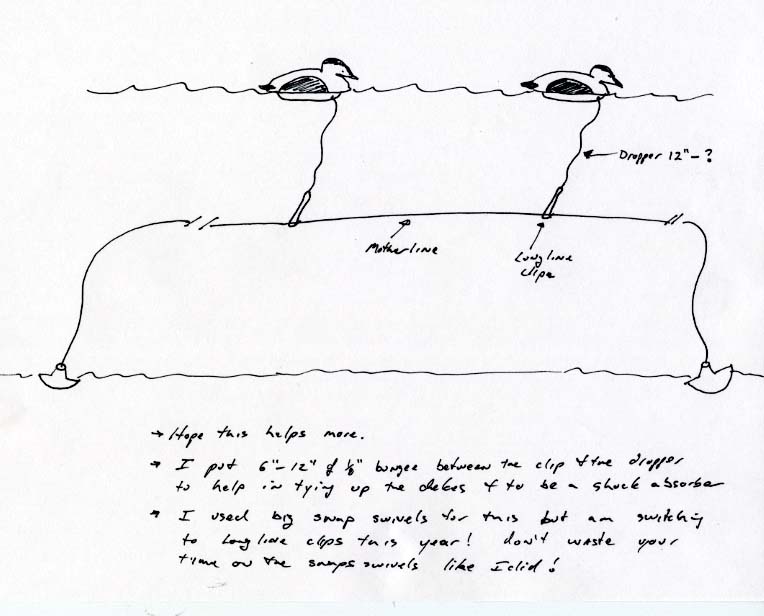 Dropper 12"-?
Motherline
Longline
clips
→ Hope this helps more.
→ I put 6"-12" of 1/8" bungee between the clip & the dropper
to help in tying up the dekes & to be a shock absorber
→ I used big snap swivels for this but am switching
to longline clips this year! don't waste your
time on the snaps swivels like I did!